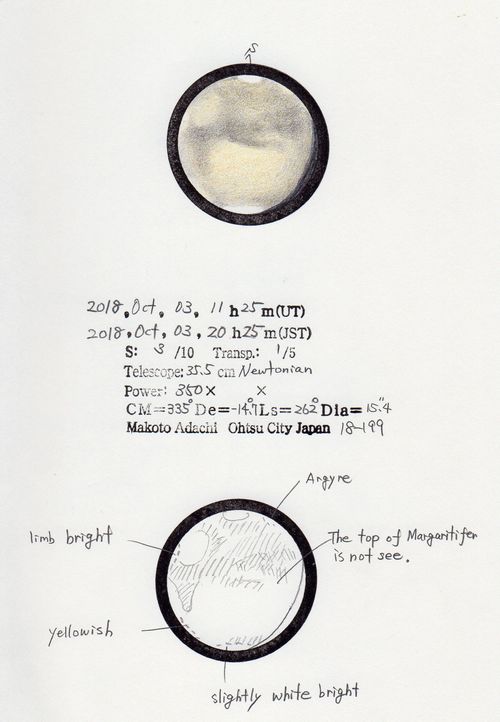 S
2018, Oct, 03, 11 h 25 m (UT)
2018, Oct, 03, 20 h 25 m (JST)
S: 3 /10 Transp.: 1/5
Telescope: 35.5 cm Newtonian
Power: 350X X
CM=335° De=-14.°7 Ls=262° Dia=15."4
Makoto Adachi Ohtsu City Japan 18-199
Argyre
limb bright
The top of Margaritifer
is not see.
yellowish
slightly white bright